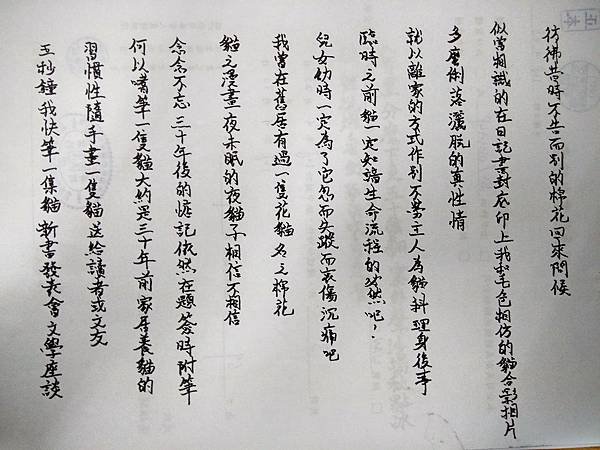 五秒鐘我快筆一隻貓 新書發表會文學座談
習慣性隨手畫一隻貓送給讀者或文友
何以嗜筆一隻貓大約是三十年前家居養貓的
念念不忘三十年後的惦記依然在題簽時附筆
貓之漫畫夜未眠的夜貓子相信不相信
我曾在舊居有過一隻花貓名之棉花
兒女幼時一定為了它忽而失蹤而哀傷沉痛吧
臨時之前貓一定知識生命流程的必然吧！
就以離家的方式作別不勞主人為貓料理身後事
多麼俐落灑脫的真性情
似曾相識的在日記書封底印上我和毛色相仿的貓合影相片
彷彿昔時不告而別的棉花回來問候